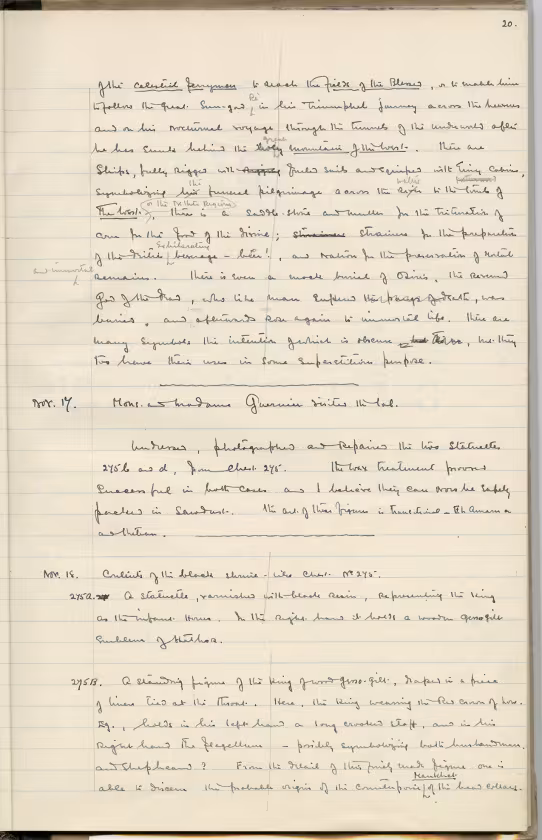 20.
of the celestial ferryman to reach the Fields of the Blessed, or to enable him
to follow the Great Sun-god, Rē in his triumphal journey across the heavens
and on his nocturnal voyage through the tunnels of the underworld after
he has sunk behind the holy great mountain of the West. There are
Ships, fully rigged with furled sails and equiped with tiny cabins,
Symbolizing the funeral pilgrimage across the to the tombs of
the West, there is a saddle-stone and muller for the trituration of
corn for the food of the divine; strainers for the preparation
of the exhilarating beverage - beer!, and natron for the preservation of mortal
and immortal
remains. There is even a mock burial of Osiris, the revered
God of the Dead, who like man suffered death, was
buried, and afterwards rose again to immortal life. There are
many symbols the intention of which is obscure, but they
too have their uses in some superstitious purpose.
Nov. 17. Mons. and Madame Guerin visited the lab.
Undressed, photographed and repaired the two statuettes
275 b and d, from Chest 275. The wax treatment proved
successful in both cases and I believe they can now be safely
packed in sawdust. The art of these figures is transitional - El Amarna
and Theban.
Nov. 18. Contents of the black shrine-like Chest No 275.
275a. A statuette, varnished with black resin, representing the King
as the infant Horus. In the right hand it holds a wooden gesso-gilt
emblem of Hathor.
275B. A standing figure of the King of wood gesso-gilt, draped in a piece
of linen tied at the throat. Here, the King wearing the Red Crown of Low.
Eg., holds in his left hand a long crooked staff, and in his
Right hand the flagellum - possibly symbolizing both husbandman
and Shepheard? From the detail of this finely made figure one is
Menkhet
able to discern the probable origin of the counterpoise of the bead collars.